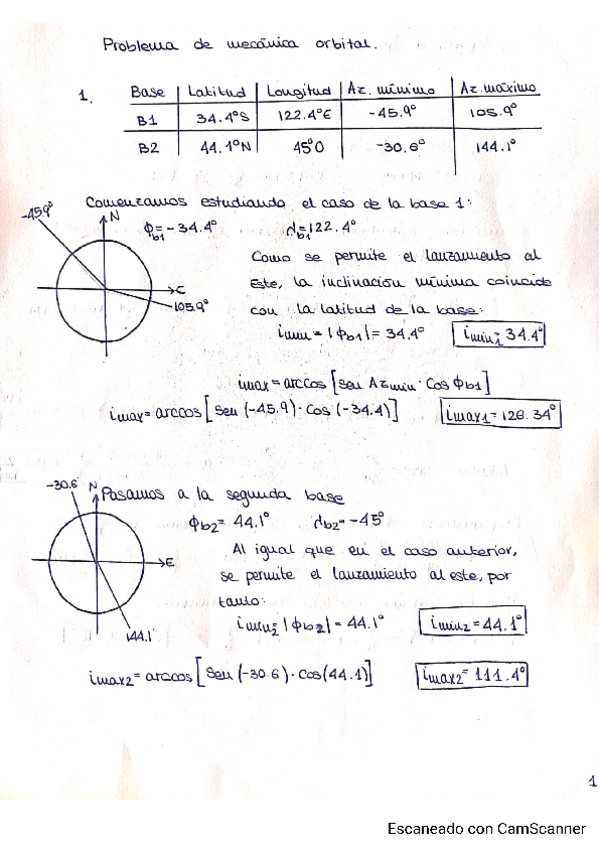 Problema de mecánica orbital.
1. Base Latitud Longitud Az. mínimo Az. máximo
B1 34.4ºS 122.4ºE -45.9º 105.9º
B2 44.1ºN 45ºO -30.6º 144.1º
Comenzamos estudiando el caso de la base 1:
-45.9º
N
ϕb1=-34.4º λb1=122.4º
E
105.9º
Como se permite el lanzamiento al
Este, la inclinación mínima coincide
con la latitud de la base:
imin = |ϕb1| = 34.4º imin1= 34.4º
imax = arccos [sen Azmin · cos ϕb1]
imax = arccos [sen (-45.9) · cos (-34.4)] imax1 = 126.34º
-30.6 N Pasamos a la segunda base
ϕb2= 44.1º λb2= -45º
E
144.1
Al igual que en el caso anterior,
se permite el lanzamiento al este, por
tanto:
imin2= |ϕb2| = 44.1º imin2= 44.1º
imax2= arccos [sen (-30.6) · cos(44.1)] imax2= 111.4º
1
Escaneado con CamScanner